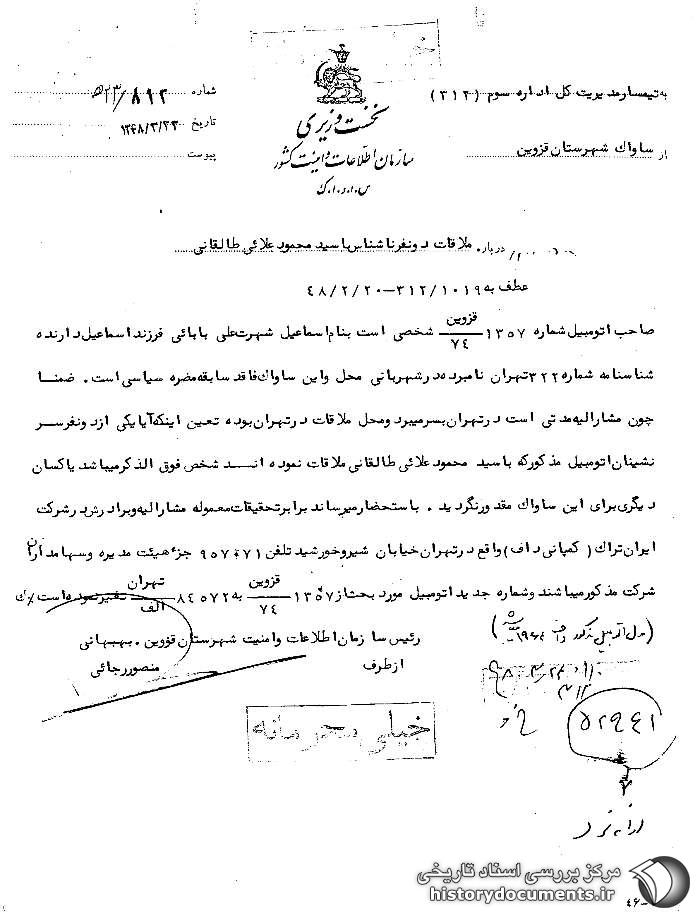 به تیمسار مدیریت کل اداره سوم (۳۱۲)
از ساواک شهرستان قزوین
نخست وزیری
سازمان اطلاعات و امنیت کشور
س.ا.و.ا.ک
شماره ۵۲۳/۸۱۲
تاریخ ۱۳۴۸/۳/۲۲
پیوست
درباره ملاقات دو نفر ناشناس با سید محمود علائی طالقانی
عطف به ۳۱۲/۱۰۱۹–۴۸/۲/۲۰
صاحب اتومبیل شماره ۱۳۵۷ قزوین/۷۴ شخصی است بنام اسماعیل شهرت علی بابائی فرزند اسماعیل دارنده
شناسنامه شماره ۳۲۲ تهران نامبرده در شهربانی محل و این ساواک فاقد سابقه مضره سیاسی است. ضمنا
چون مشارالیه مدتی است در تهران بسر میبرد و محل ملاقات در تهران بوده تعین اینکه آیا یکی از دو نفر سر
نشینان اتومبیل مذکور که با سید محمود علائی طالقانی ملاقات نموده اند شخص فوق الذکر میباشد یا کسان
دیگری برای این ساواک مقدور نگردید. باستحضار میرساند برابر تحقیقات معموله مشارالیه و برادرش در شرکت
ایران تراک (کمپانی داف) واقع در تهران خیابان شیر و خورشید تلفن ۹۵۷۴۷۱ جزء هیئت مدیره و سهامداران
شرکت مذکور میباشند و شماره جدید اتومبیل مورد بحث از ۱۳۵۷ قزوین/۷۴ به ۸۴۵۷۲ تهران/الف تغییر نموده است
رئیس سازمان اطلاعات و امنیت شهرستان قزوین. بهبهانی
از طرف منصور رجائی
(مدل اتومبیل مذکور
خیلی محرمانه
۵۲۹۴۱
مرکز بررسی اسناد تاریخی
historydocuments.ir
۴۶-